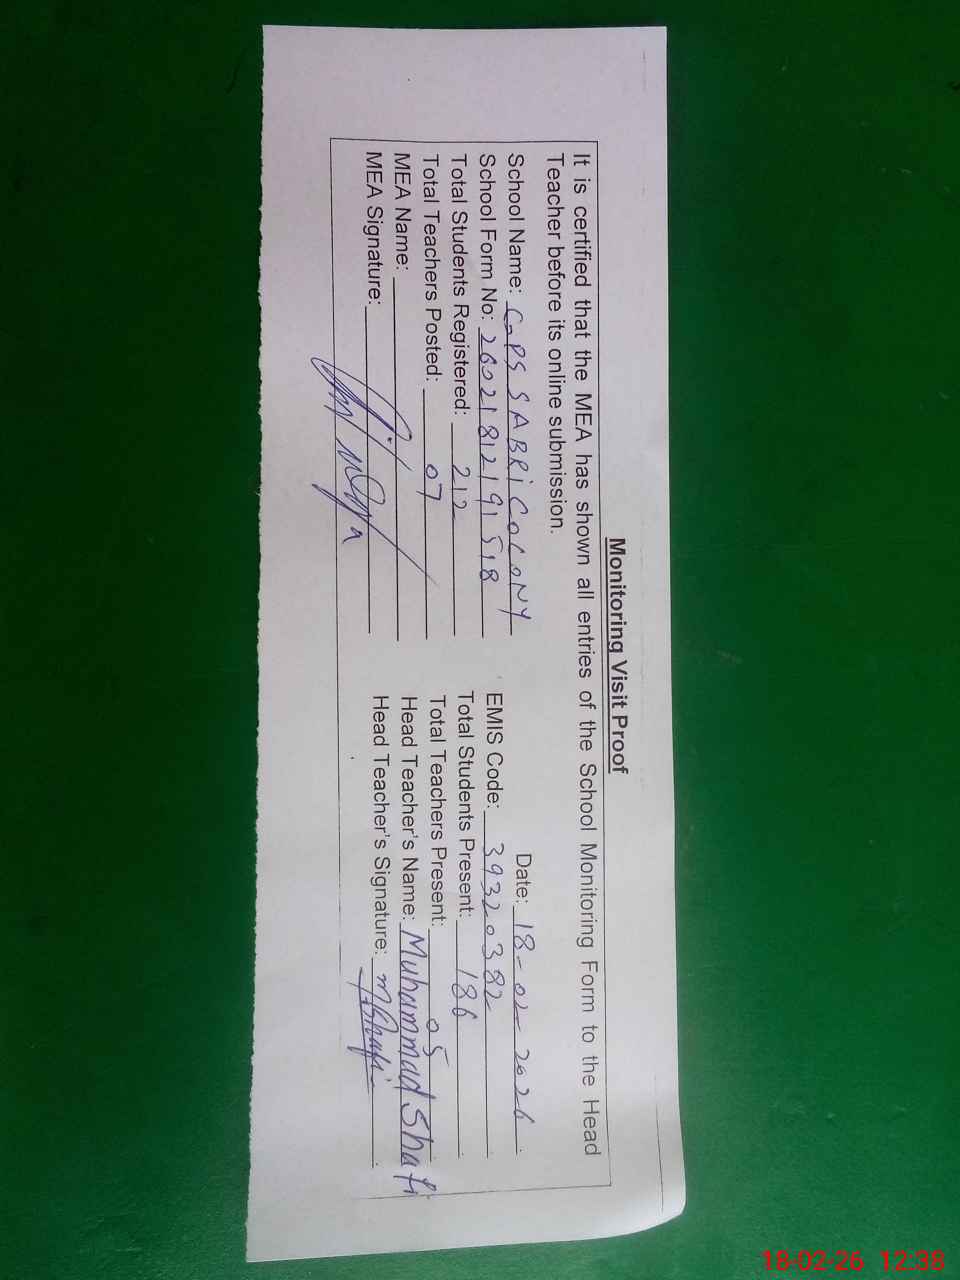 Monitoring Visit Proof
It is certified that the MEA has shown all entries of the School Monitoring Form to the Head
Teacher before its online submission.
Date: 18-02-2026
School Name: GPS SABRi COLONY
School Form No: 26021812191518 EMIS Code: 39320382
Total Students Registered: 212 Total Students Present: 186
Total Teachers Posted: 07 Total Teachers Present: 05
MEA Name: Head Teacher's Name: Muhammad Shafi
MEA Signature: Head Teacher's Signature: M.Shafi
18-02-26 12:38